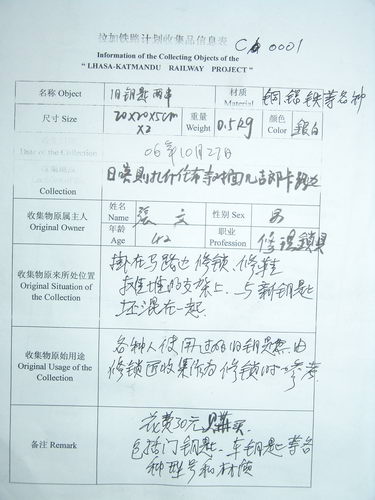 拉加铁路计划收集品信息表
C 0001
Information of the Collecting Objects of the
" LHASA-KATMANDU RAILWAY PROJECT "
名称 Object 旧钥匙两串 材质 Material 铜 铝 铁等各种
尺寸 Size 20×20×5cm ×2 重量 Weight 0.5kg 颜色 Color 银白
Date of the Collection 06年10月27日
Collection
收集物原属主人 Original Owner 姓名 Name 张 文 性别 Sex 男
年龄 Age 42 职业 Profession 修理锁具
收集物原来所处位置
Original Situation of
the Collection
挂在马路边修锁、修鞋
摊的支架上,与新钥匙
坯混在一起.
收集物原始用途
Original Usage of the
Collection
各种人使用过的旧钥匙,由
修锁匠收集 修锁时 参考
备注 Remark
花费30元购买.
包括门钥匙、车钥匙等各
种型号和材质